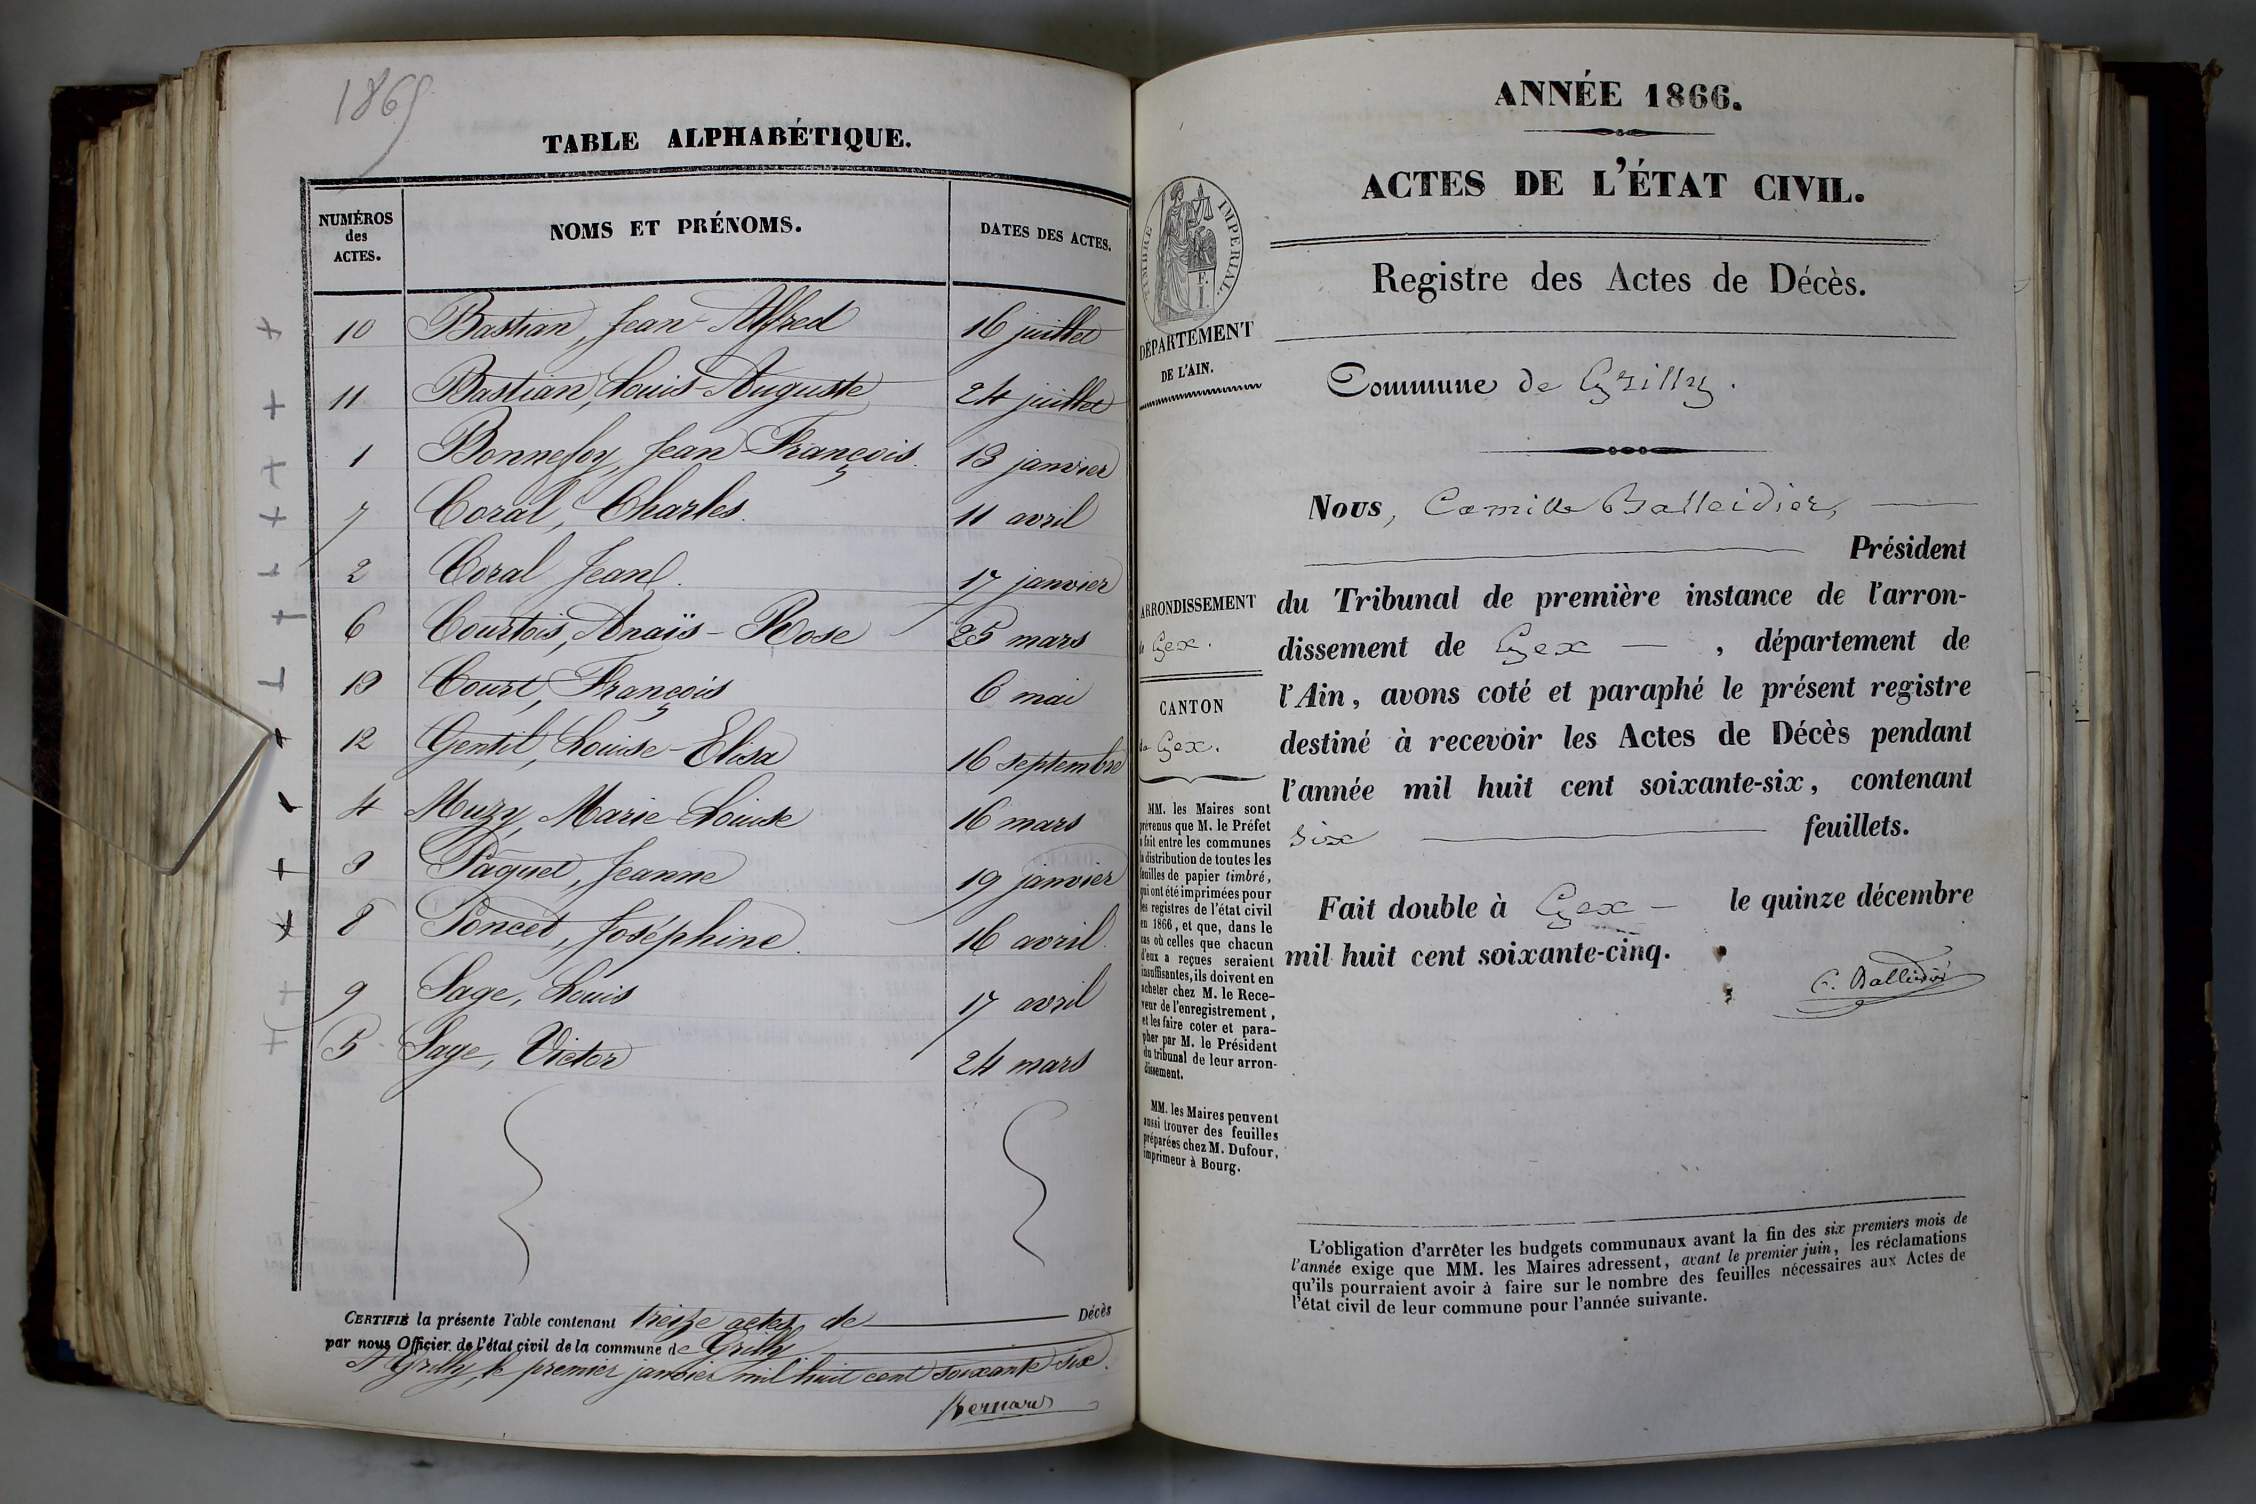 1865
TABLE ALPHABÉTIQUE.
NUMÉROS
des
ACTES.
NOMS ET PRÉNOMS.
DATES DES ACTES.
10 Bastian, Jean-Alfred 16 juillet
11 Bastian, Louis-Auguste 24 juillet
1 Bonnefoy, Jean François. 13 janvier
7 Coral, Charles. 11 avril
2 Coral Jean. 17 janvier
6 Courtois, Anaïs-Rose 25 mars
13 Court, François 6 mai
12 Gentil, Louise-Elisa 16 septembre
4 Muzy, Marie-Louise 16 mars
3 Paquet, Jeanne 19 janvier
8 Poncet, Joséphine. 16 avril.
9 Sage, Louis 17 avril
5 Sage, Victor 24 mars
CERTIFIÉ la présente Table contenant treize actes de Décès
par nous Officier de l'état civil de la commune de Grilly
A Grilly, le premier janvier mil huit cent soixante-six.
Bernard
ANNÉE 1866.
ACTES DE L'ÉTAT CIVIL.
TIMBRE IMPERIAL.
E.
I.
Registre des Actes de Décès.
DÉPARTEMENT
DE L'AIN.
Commune de Grilly.
Nous, Camille Balleidier,
Président
ARRONDISSEMENT
de Gex.
CANTON
de Gex.
du Tribunal de première instance de l'arron-
dissement de Gex, département de
l'Ain, avons coté et paraphé le présent registre
destiné à recevoir les Actes de Décès pendant
l'année mil huit cent soixante-six, contenant
six feuillets.
Fait double à Gex le quinze décembre
mil huit cent soixante-cinq.
C. Balleidier
MM. les Maires sont
prévenus que M. le Préfet
a fait entre les communes
la distribution de toutes les
feuilles de papier timbré,
qui ont été imprimées pour
les registres de l'état civil
en 1866, et que, dans le
cas où celles que chacun
d'eux a reçues seraient
insuffisantes, ils doivent en
acheter chez M. le Rece-
veur de l'enregistrement,
et les faire coter et para-
pher par M. le Président
du tribunal de leur arron-
dissement.
MM. les Maires peuvent
aussi trouver des feuilles
préparées chez M. Dufour,
imprimeur à Bourg.
L'obligation d'arrêter les budgets communaux avant la fin des six premiers mois de
l'année exige que MM. les Maires adressent, avant le premier juin, les réclamations
qu'ils pourraient avoir à faire sur le nombre des feuilles nécessaires aux Actes de
l'état civil de leur commune pour l'année suivante.